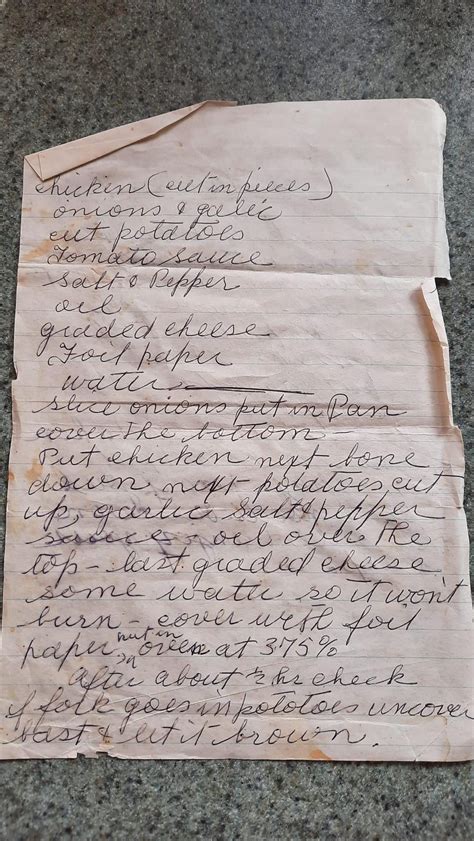 chicken (cut in pieces)
onions & garlic
cut potatoes
Tomato sauce
Salt & Pepper
oil
graded cheese
Foil paper
water
slice onions put in Pan
cover the bottom -
Put chicken next bone
down next potatoes cut
up, garlic salt & pepper
sauce - oil over the
top - last graded cheese
some water so it won't
burn - cover with foil
paper put in oven at 375%
After about ½ hs check
if fork goes in pototoes uncover
bast & let it brown.